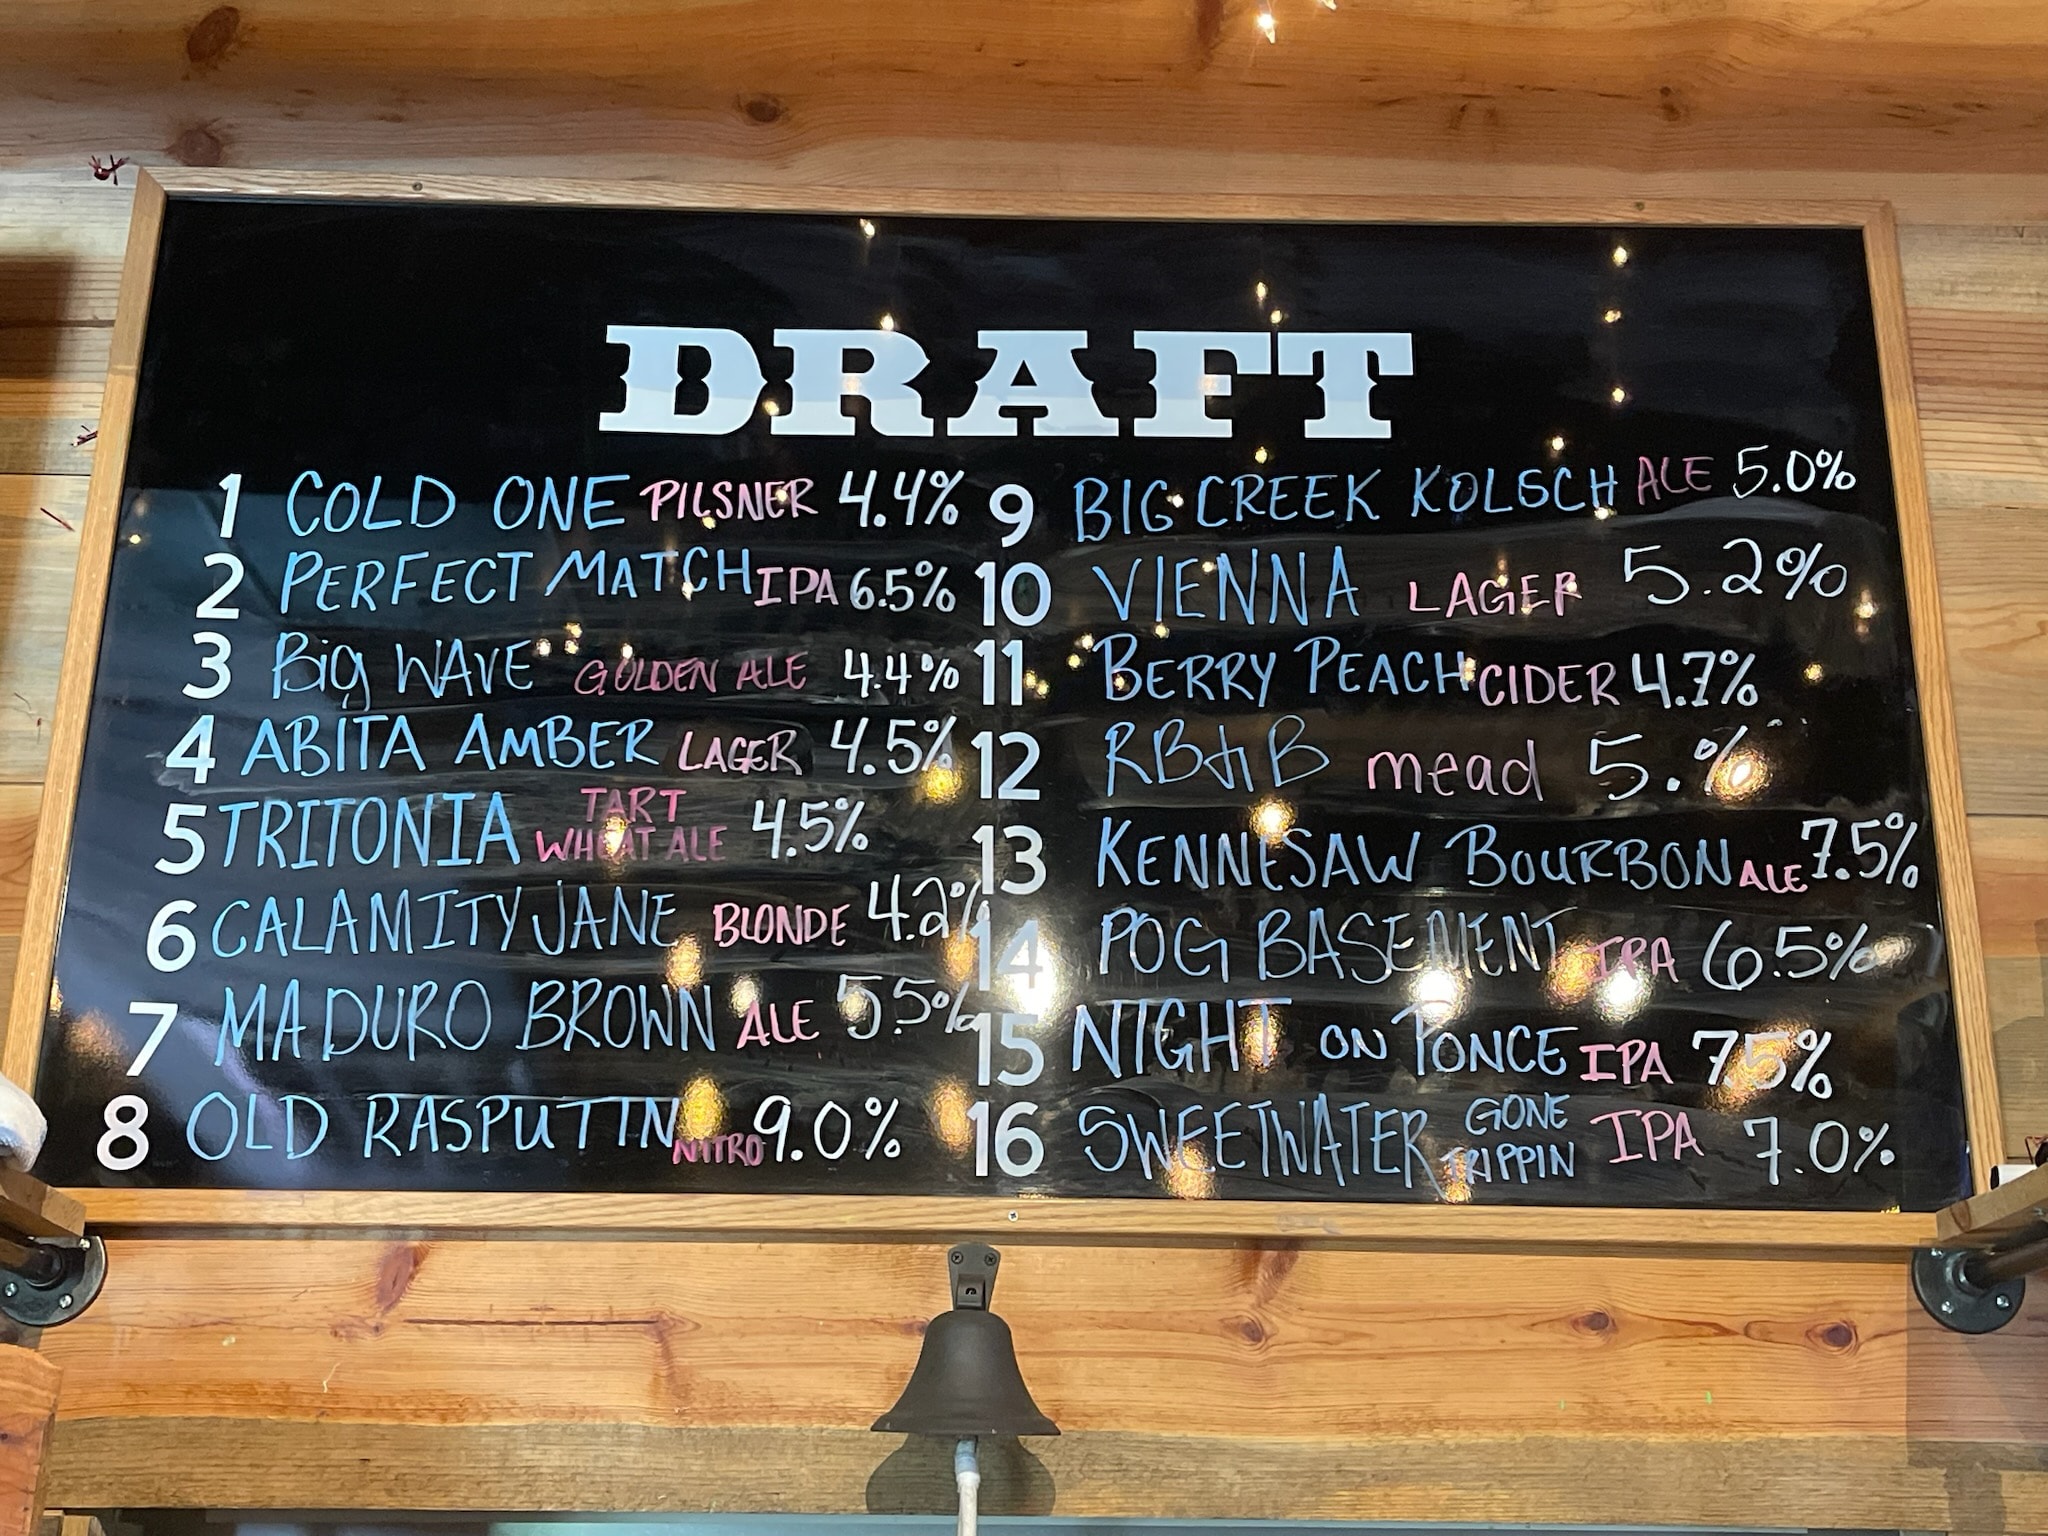 DRAFT
1 COLD ONE PILSNER 4.4%
2 PERFECT MATCH IPA 6.5%
3 Big WAVE GOLDEN ALE 4.4%
4 ABITA AMBER LAGER 4.5%
5 TRITONIA TART WHEAT ALE 4.5%
6 CALAMITY JANE BLONDE 4.2%
7 MADURO BROWN ALE 5.5%
8 OLD RASPUTIN NITRO 9.0%
9 BIG CREEK KOLSCH ALE 5.0%
10 VIENNA LAGER 5.2%
11 BERRY PEACH CIDER 4.7%
12 RB&B mead 5.%
13 KENNESAW BOURBON ALE 7.5%
14 POG BASEMENT IPA 6.5%
15 NIGHT ON PONCE IPA 7.5%
16 SWEETWATER GONE TRIPPIN IPA 7.0%